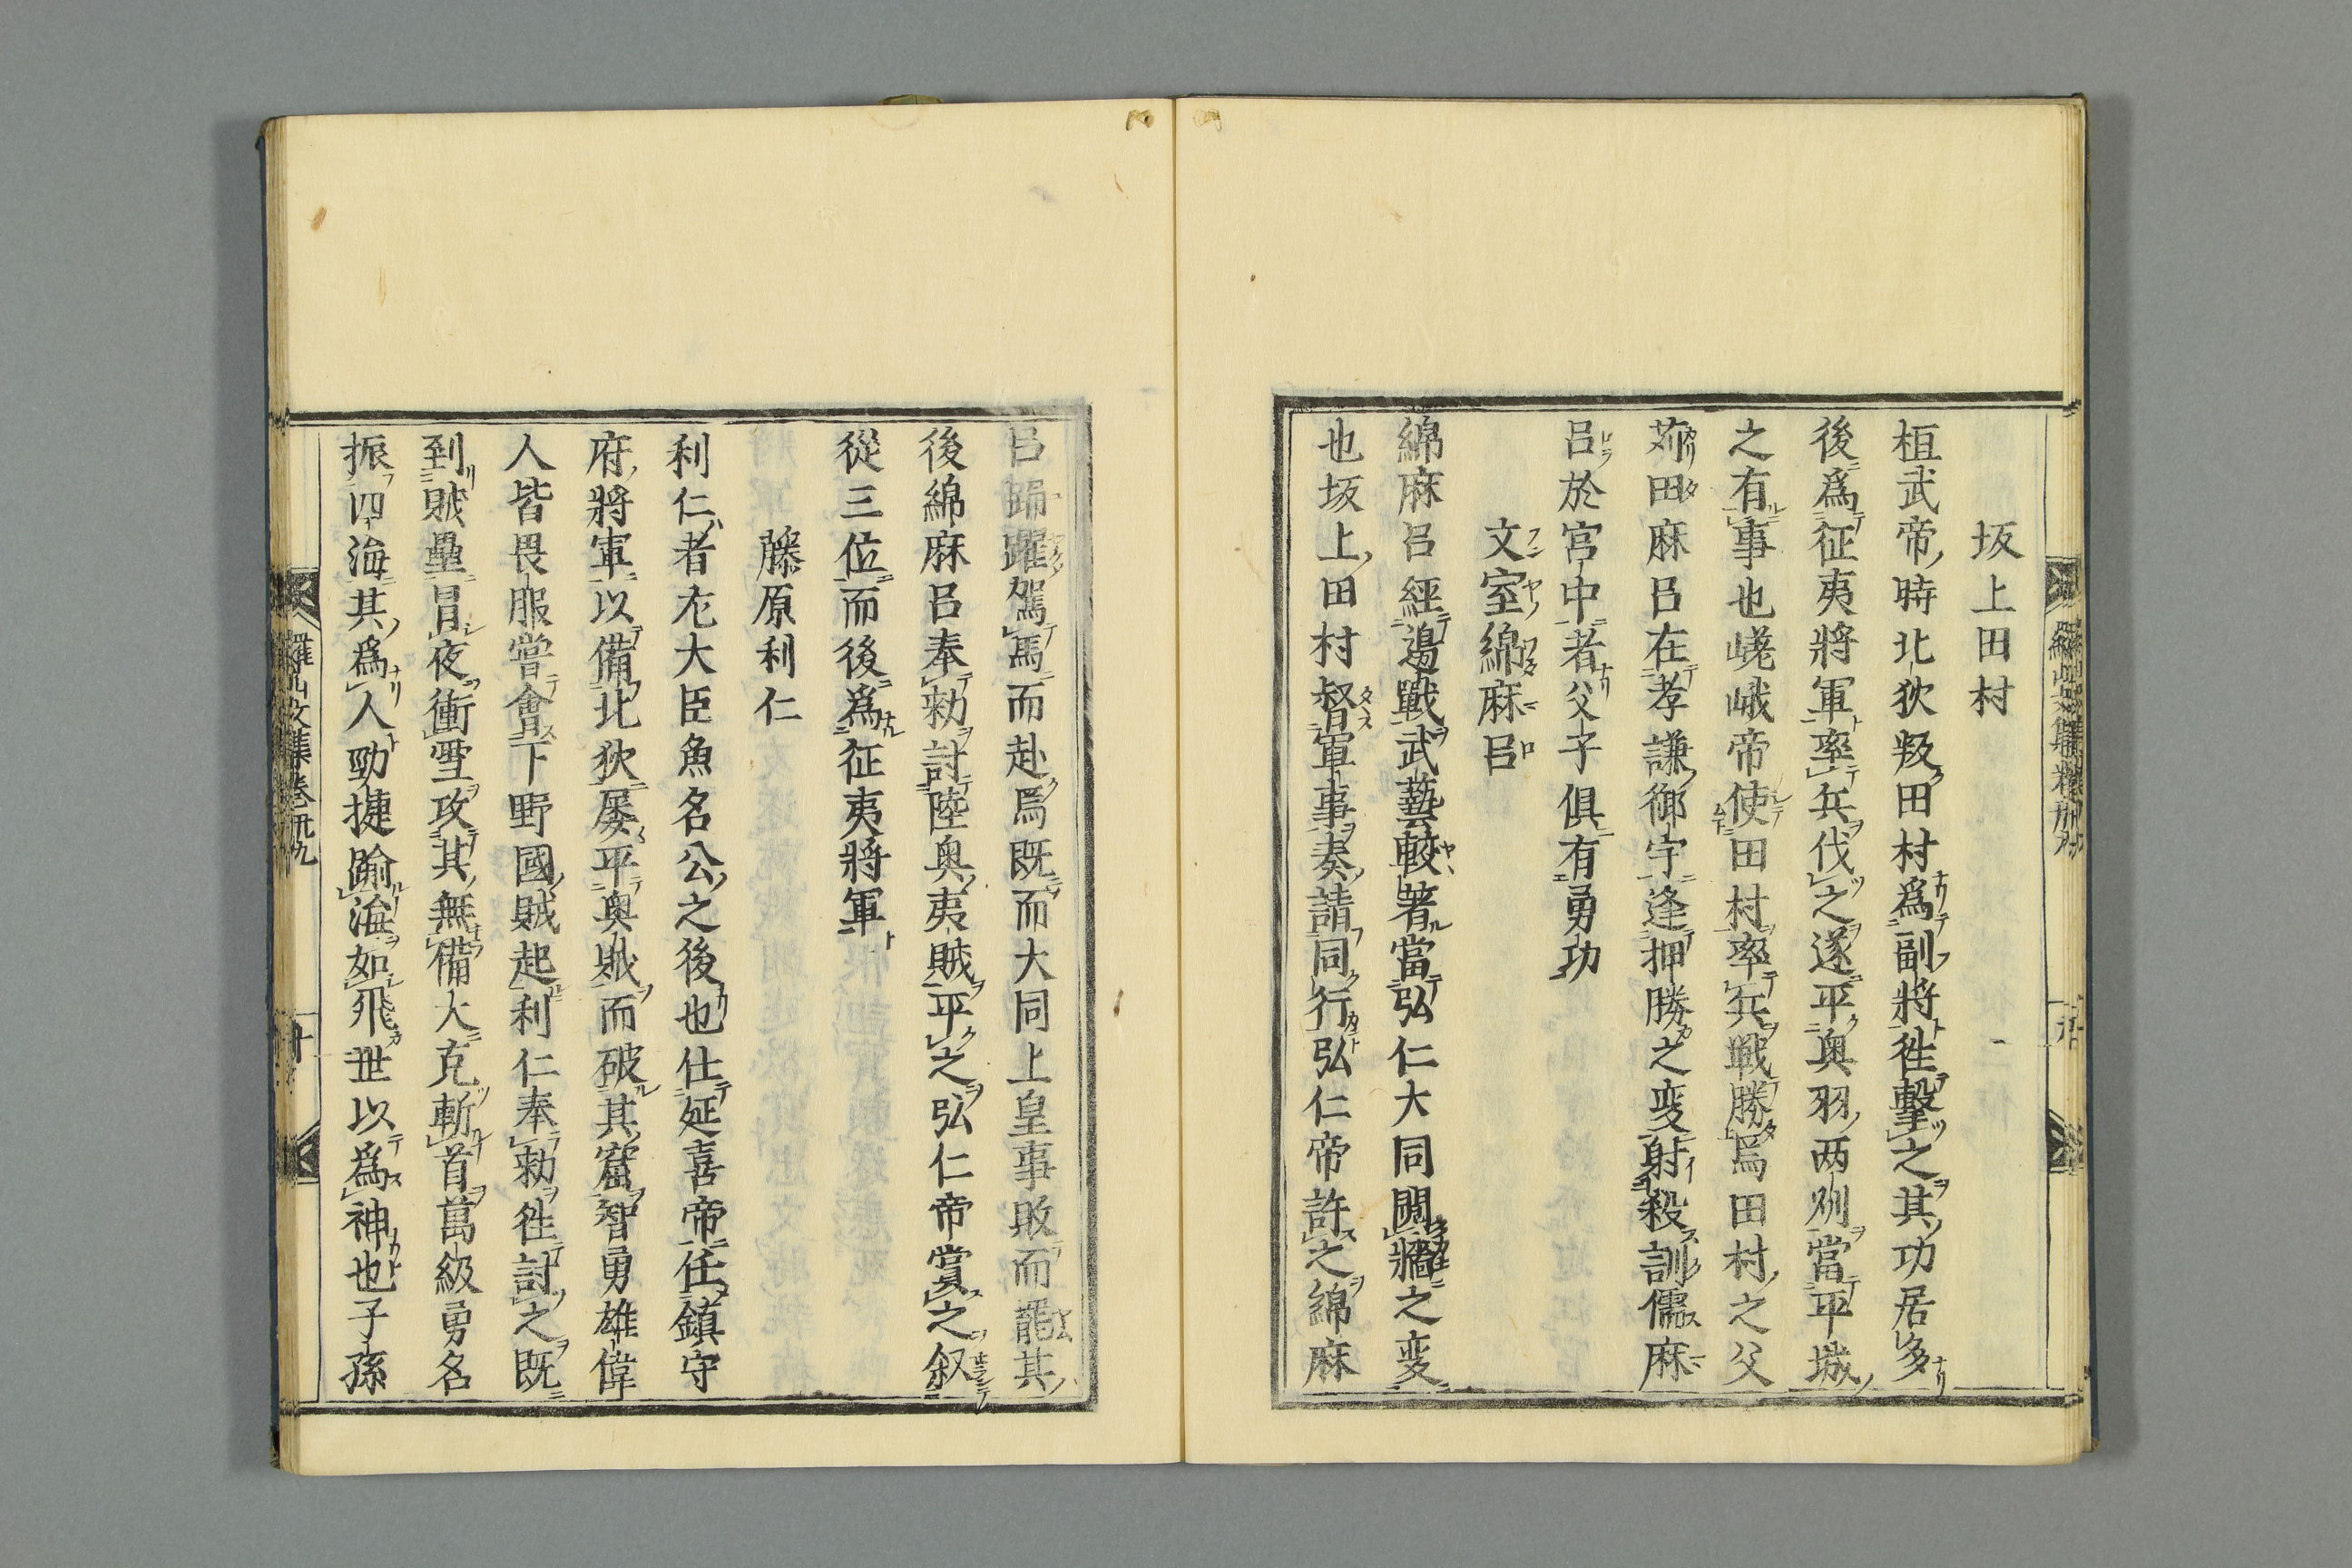 坂上田村
桓武帝時北狄叛田村爲副將徃擊之其功居多
後爲征夷將軍率兵伐之遂平奥羽两州當平城
之有事也嵯峨帝使田村率兵戰勝焉田村之父
苅田麻呂在孝謙御宇逢押勝之変射殺訓儒麻
呂於宮中者父子俱有勇功
文室綿麻呂
綿麻呂經邊戰武藝較著當弘仁大同䦧牆之変
也坂上田村督軍事奏請同行弘仁帝許之綿麻
呂踊躍駕馬而赴焉既而大同上皇事敗而罷其
後綿麻呂奉勅討陸奥夷賊平之弘仁帝賞之叙
從三位而後爲征夷將軍
藤原利仁
利仁者左大臣魚名公之後也仕延喜帝任鎮守
府將軍以備北狄屡平奥賊而破其窟智勇雄偉
人皆畏服嘗會下野國賊起利仁奉勅徃討之既
到賊壘冒夜衝雪攻其無備大克斬首萬級勇名
振四海其爲人勁捷踰海如飛世以爲神也子孫
羅山文集卷卅九
十